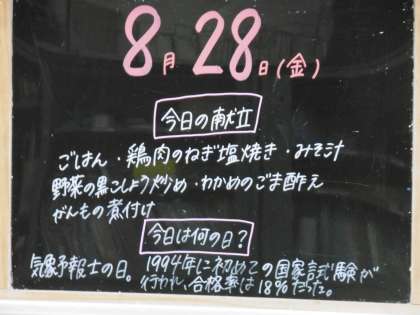 8月28日(金)
今日の献立
ごはん・鶏肉のねぎ塩焼き・みそ汁
野菜の黒こしょう炒め・わかめのごま酢あえ
がんもの煮付け
今日は何の日?
気象予報士の日。1994年に初めての国家試験が
行われ、合格率は18%だった。